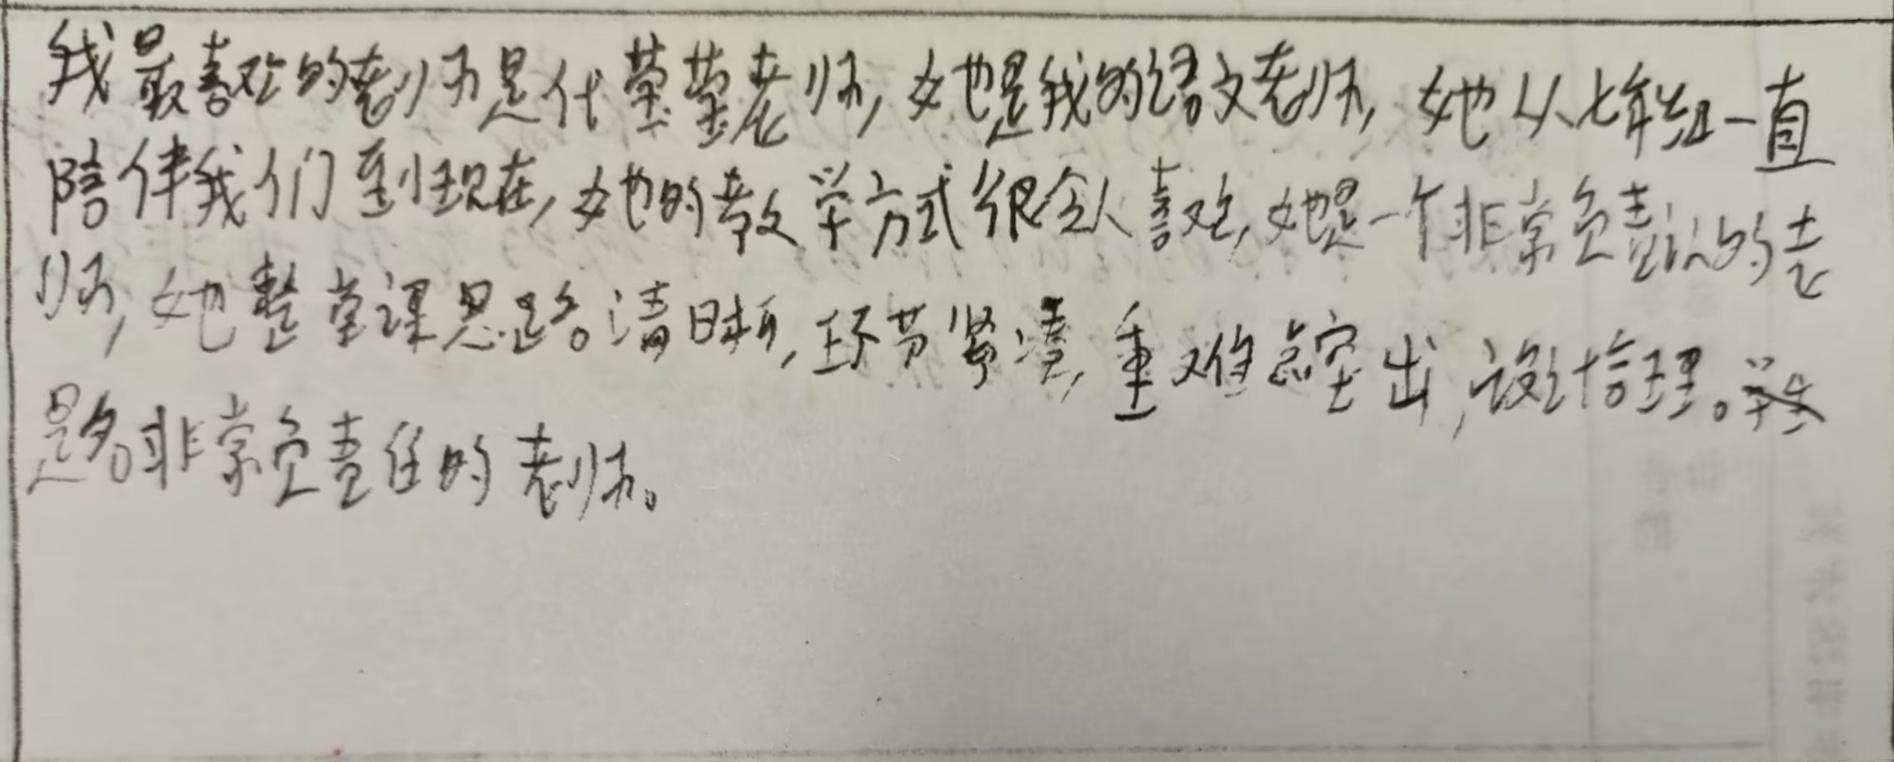 我最喜欢的老师是代荣荣老师,她是我的语文老师,她从七年级一直
陪伴我们到现在,她的教学方式很令人喜欢,她是一个非常负责认的老
师,她整堂课思路清晰,环节紧凑,重难点突出,设计合理。
是名非常负责任的老师。